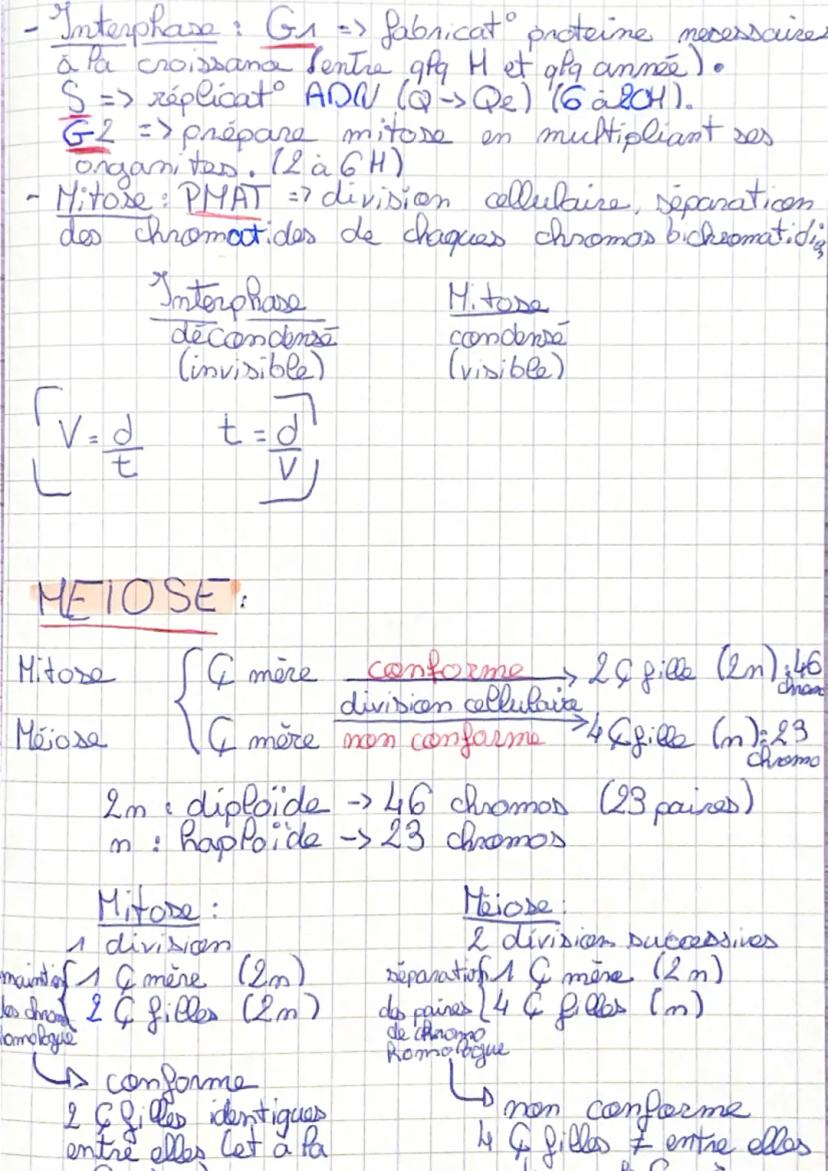 - Interphase : G1 => fabricat° proteine necessaires
à la croissance (entre qlq H et qlq année).
S => réplicat° ADN (Q -> Qe) (6 à 20H).
G2 => prépare mitose en multipliant ses
organites. (2 à 6 H)
- Mitose : PMAT => division cellulaire, séparation
des chromatides de chaques chromos bichromatidiq
Interphase Mitose
décondensé condensé
(invisible) (visible)
V = d/t t = d/V
MEIOSE :
Mitose Ç mère conforme -> 2 Ç fille (2n) : 46 chromo
division cellulaire
Méiose Ç mère non conforme -> 4 Ç fille (n) : 23 chromo
2n : diploïde -> 46 chromos (23 paires)
n : haploïde -> 23 chromos
Mitose : Méiose :
1 division 2 division successives
maintien 1 Ç mère (2n) séparation 1 Ç mère (2n)
des chromo 2 Ç filles (2n) des paires 4 Ç filles (n)
homologue de chromo
homologue
-> conforme -> non conforme
2 Ç filles identiques 4 Ç filles ≠ entre elles
entre elles (et à la